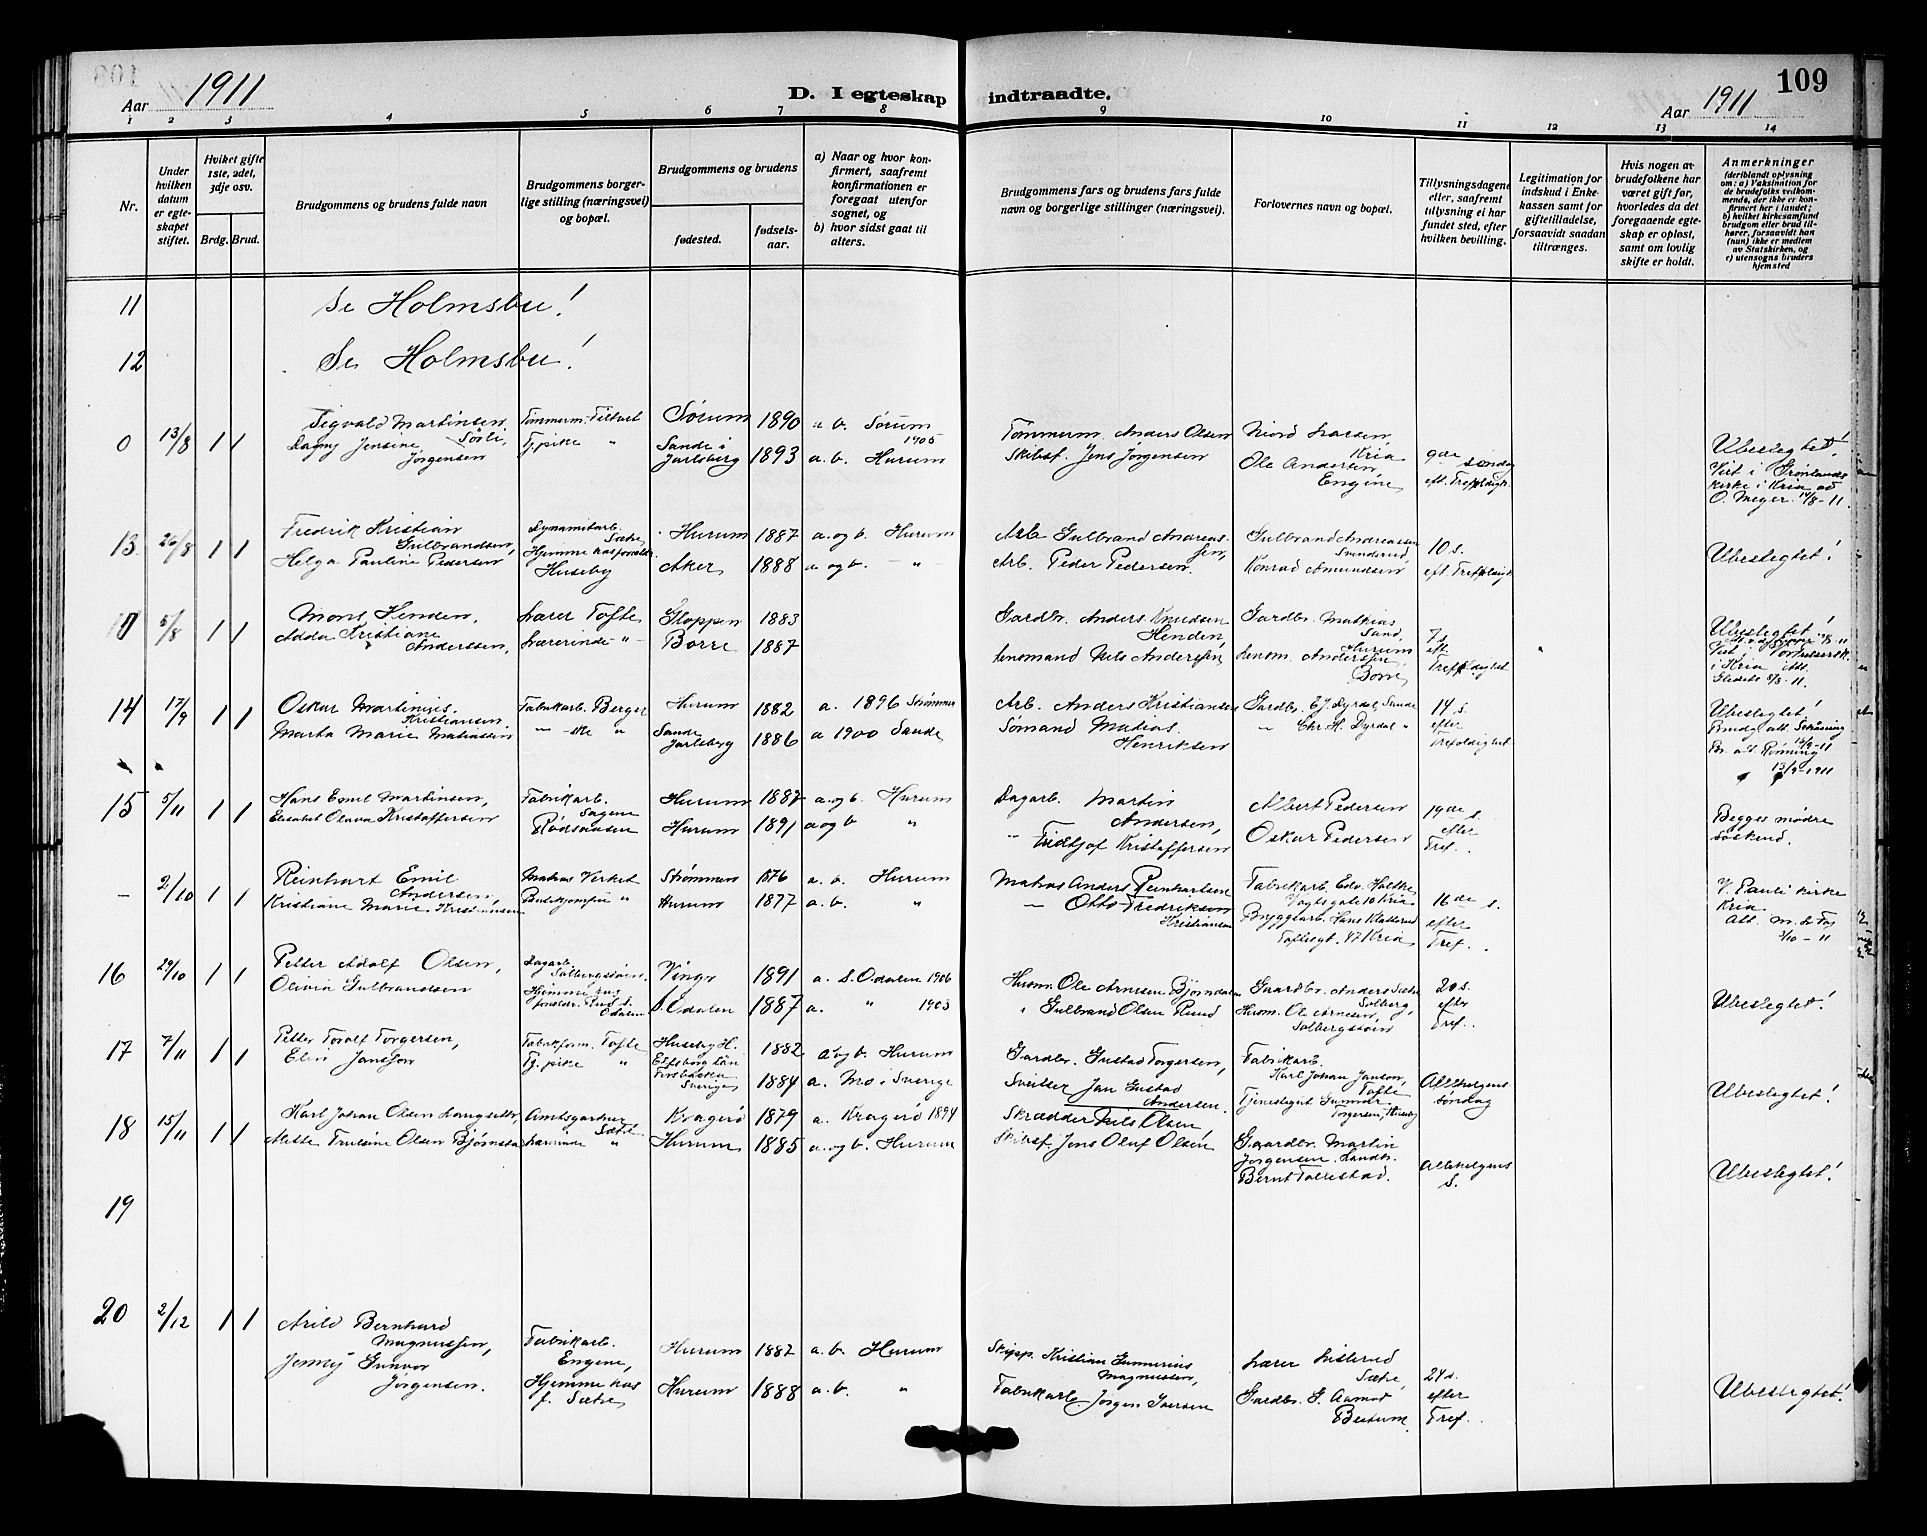 Aar 1911
D. I egteskap
indtraadte.
109
Aar 1911
1 2 3 4 5 6 7 8 9 10 11 12 13 14
Nr.
Under hvilken datum er egteskapet stiftet.
Hvilket gifte 1ste, 2det, 3dje osv.
Brdg. Brud.
Brudgommens og brudens fulde navn
Brudgommens borgerlige stilling (næringsvei) og bopæl.
Brudgommens og brudens
fødested.
fødselsaar.
a) Naar og hvor konfirmert, saafremt konfirmationen er foregaat utenfor sognet, og
b) hvor sidst gaat til alters.
Brudgommens fars og brudens fars fulde navn og borgerlige stillinger (næringsvei).
Forlovernes navn og bopæl.
Tillysningsdagene eller, saafremt tillysning ei har fundet sted, efter hvilken bevilling.
Legitimation for indskud i Enkekassen samt for giftetilladelse, forsaavidt saadan tiltrænges.
Hvis nogen av brudefolkene har været gift før, hvorledes da det foregaaende egteskap er opløst, samt om lovlig skifte er holdt.
Anmerkninger (deriblandt oplysning om: a) Vaksination for de brudefolks vedkommende, der ikke er konfirmert her i landet; b) hvilket kirkesamfund brudgom eller brud tilhører, forsaavidt han (hun) ikke er medlem av Statskirken, og c) utensogns bruders hjemsted
11 Se Holmsbu!
12 Se Holmsbu!
0 13/8 1 1 Sigvald Martinsen Tømmerm. Sørum 1890 a. b. Sørum 1905 Tømmerm. Anders Olsen Larsen, Kria 9de søndag Ubeslegtet!
Dagny Jensine Jørgensen Tj.pike " Sande i Jarlsberg 1893 a. b. Hurum Skibsf. Jens Jørgensen Ole Andersen, Engene Viet i Grønlands kirke i Kria av O. Meyer 14/8-11.
13 26/8 1 1 Fredrik Kristian Gulbrandsen, Dynamitarb. Sætre Hurum 1887 a. og b. Hurum Arb. Gulbrand Andreassen, Gulbrand Andreassen 10 s. Ubeslegtet!
Helga Pauline Pedersen Hjemme hos foreldr. Huseby Aker 1888 a og b. - " - Arb. Peder Pedersen. Konrad Amundsen eft. Trefoldigh.
0 5/8 1 1 Mons Henden, Lærer Tofte Gloppen 1883 Gardbr. Anders Knudsen Henden Gardbr. Mathias Sand, Hurum 7 s. eft. Ubeslegtet!
Adda Kristiane Anderssen, Lærerinde - " - Borre 1887 Lensmand Nils Anderssen Lensm. Anderssen Borre Trefoldighet
14 17/9 1 1 Oskar Martinius Kristiansen. Fabrikarb. Berger Hurum 1882 a. 1896 Strømmen Arb. Anders Kristiansen Gardbr. E. J. Dyrdal, Sande 14 s. efter Ubeslegtet!
Marta Marie Matiassen Sande Jarlsberg 1886 a 1900 Sande Sømand Matias Henriksen " Chr. H. Dyrdal " Trefoldighet 13/9-1911
15 5/11 1 1 Hans Emil Martinsen, Fabrikarb. Sagene Hurum 1887 a. og b. Hurum Dagarb. Martin Andersen, Albert Pedersen 19de s. efter Begges mødre
Elisabet Olava Kristoffersen Rødsaasen Hurum 1891 a og b " " Fridtjof Kristoffersen Oskar Pedersen Tref. søskend.
- 2/10 1 1 Reinhart Emil Andersen, Matros Verket Strømmen 1876 a. b. Hurum Matros Anders Reinhartsen Fabrikarb. Edv. Holtke Vogtsgate 10 Kria 16de s. V. Pauli kirke Kria
Kristiane Marie Kristiansen Hurum 1877 a. b. " " Otto Fredriksen Kristiansen Bryggearb. Hans Klatterud Toftesgt. 47 Kria efter Tref. 2/10-11
16 29/10 1 1 Petter Adolf Olsen, Dagarb. Solbergstøen. Vinger 1891 a. S. Odalen 1906 Husm. Ole Arnesen Bjørndalen Gaardbr. Anders Sætre Solberg, 20 s. efter Ubeslegtet!
Olivia Gulbrandsen Hjemme hos foreldr. Rud S. Odalen S. Odalen 1887 a. " 1903 " Gulbrand Olsen Rund Husm. Ole Arnesen, Solbergstøen Tref.
17 7/11 1 1 Petter Torolf Torgersen, Fabrikform. Tofte Huseby H. 1882 a og b. Hurum Gardbr. Gustad Torgersen, Fabrikarb. Karl Johan Janson, Tofte Allehelgens søndag Ubeslegtet!
Elin Jansson Tj. pike " Elfsborg län Sverige 1884 a. Mo i Sverige Sveitser Jan Gustad Andersen. Tjenestegut Gunnar Torgersen, Huseby
18 15/11 1 1 Karl Johan Olsen Langseter, Amtsgartner Sætre Kragerø 1879 a. Kragerø 1894 Skrædder Nils Olsen, Gaardbr. Martin Jørgensen. Allehelgens S. Ubeslegtet!
Mette Truline Olsen Bjørnstad Lærerinde " Hurum 1885 a. og b. Hurum Skibsf. Jens Oluf Olsen Landbr. Bernt Tollefstad.
19
20 2/12 1 1 Arild Bernhard Magnussen, Fabrikarb. Engene, Hurum 1887 a. b. Hurum Skipp. Kristian Gunnerius Magnussen, Lærer Listerud Sætre 24 s. efter Ubeslegtet!
Jenny Gunvor Jørgensen. Hjemme hos f. Sætre Hurum 1888 a. b. " Fabrikarb. Jørgen Iversen Gardbr. G. Aamot Bestum. Tref.